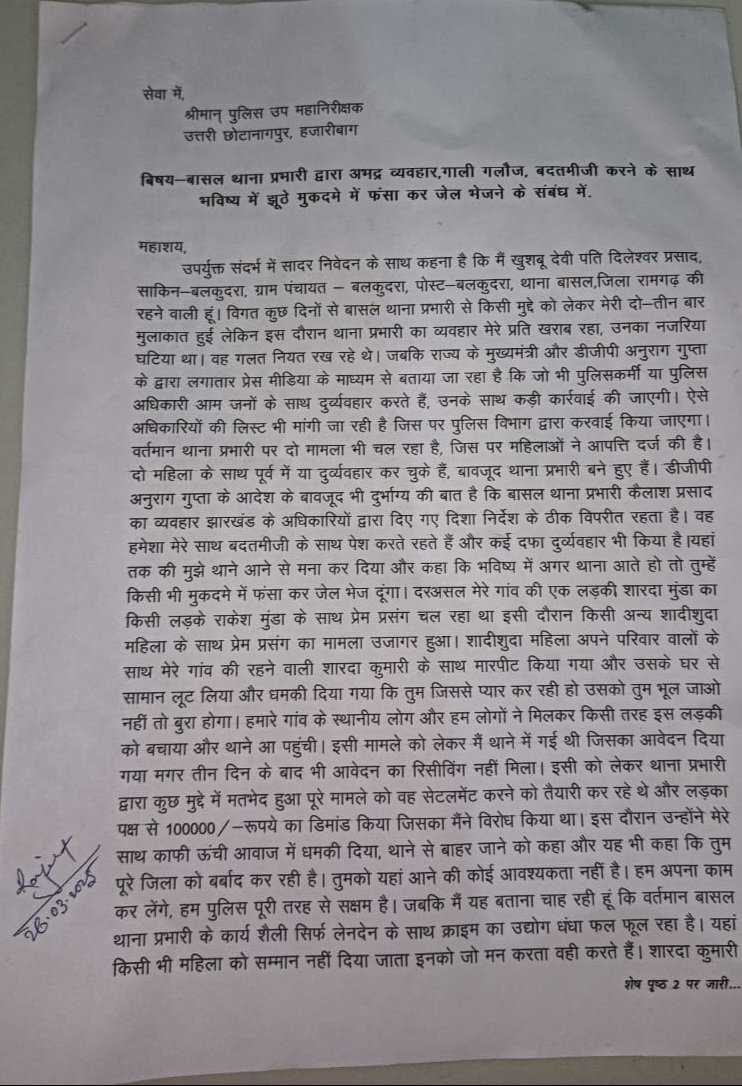 सेवा में,
श्रीमान् पुलिस उप महानिरीक्षक
उत्तरी छोटानागपुर, हजारीबाग
बिषय–बासल थाना प्रभारी द्वारा अभद्र व्यवहार,गाली गलौज, बदतमीजी करने के साथ
भविष्य में झूठे मुकदमे में फंसा कर जेल भेजने के संबंध में.
महाशय,
उपर्युक्त संदर्भ में सादर निवेदन के साथ कहना है कि मैं खुशबू देवी पति दिलेश्वर प्रसाद,
साकिन–बलकुदरा, ग्राम पंचायत – बलकुदरा, पोस्ट–बलकुदरा, थाना बासल,जिला रामगढ़ की
रहने वाली हूं। विगत कुछ दिनों से बासल थाना प्रभारी से किसी मुद्दे को लेकर मेरी दो–तीन बार
मुलाकात हुई लेकिन इस दौरान थाना प्रभारी का व्यवहार मेरे प्रति खराब रहा, उनका नजरिया
घटिया था। वह गलत नियत रख रहे थे। जबकि राज्य के मुख्यमंत्री और डीजीपी अनुराग गुप्ता
के द्वारा लगातार प्रेस मीडिया के माध्यम से बताया जा रहा है कि जो भी पुलिसकर्मी या पुलिस
अधिकारी आम जनों के साथ दुर्व्यवहार करते हैं, उनके साथ कड़ी कार्रवाई की जाएगी। ऐसे
अधिकारियों की लिस्ट भी मांगी जा रही है जिस पर पुलिस विभाग द्वारा करवाई किया जाएगा।
वर्तमान थाना प्रभारी पर दो मामला भी चल रहा है, जिस पर महिलाओं ने आपत्ति दर्ज की है।
दो महिला के साथ पूर्व में या दुर्व्यवहार कर चुके हैं, बावजूद थाना प्रभारी बने हुए हैं। डीजीपी
अनुराग गुप्ता के आदेश के बावजूद भी दुर्भाग्य की बात है कि बासल थाना प्रभारी कैलाश प्रसाद
का व्यवहार झारखंड के अधिकारियों द्वारा दिए गए दिशा निर्देश के ठीक विपरीत रहता है। वह
हमेशा मेरे साथ बदतमीजी के साथ पेश करते रहते हैं और कई दफा दुर्व्यवहार भी किया है।यहां
तक की मुझे थाने आने से मना कर दिया और कहा कि भविष्य में अगर थाना आते हो तो तुम्हें
किसी भी मुकदमे में फंसा कर जेल भेज दूंगा। दरअसल मेरे गांव की एक लड़की शारदा मुंडा का
किसी लड़के राकेश मुंडा के साथ प्रेम प्रसंग चल रहा था इसी दौरान किसी अन्य शादीशुदा
महिला के साथ प्रेम प्रसंग का मामला उजागर हुआ। शादीशुदा महिला अपने परिवार वालों के
साथ मेरे गांव की रहने वाली शारदा कुमारी के साथ मारपीट किया गया और उसके घर से
सामान लूट लिया और धमकी दिया गया कि तुम जिससे प्यार कर रही हो उसको तुम भूल जाओ
नहीं तो बुरा होगा। हमारे गांव के स्थानीय लोग और हम लोगों ने मिलकर किसी तरह इस लड़की
को बचाया और थाने आ पहुंची। इसी मामले को लेकर मैं थाने में गई थी जिसका आवेदन दिया
गया मगर तीन दिन के बाद भी आवेदन का रिसीविंग नहीं मिला। इसी को लेकर थाना प्रभारी
द्वारा कुछ मुद्दे में मतभेद हुआ पूरे मामले को वह सेटलमेंट करने को तैयारी कर रहे थे और लड़का
पक्ष से 100000/–रूपये का डिमांड किया जिसका मैंने विरोध किया था। इस दौरान उन्होंने मेरे
साथ काफी ऊंची आवाज में धमकी दिया, थाने से बाहर जाने को कहा और यह भी कहा कि तुम
पूरे जिला को बर्बाद कर रही है। तुमको यहां आने की कोई आवश्यकता नहीं है। हम अपना काम
कर लेंगे, हम पुलिस पूरी तरह से सक्षम है। जबकि मैं यह बताना चाह रही हूं कि वर्तमान बासल
थाना प्रभारी के कार्य शैली सिर्फ लेनदेन के साथ क्राइम का उद्योग धंधा फल फूल रहा है। यहां
किसी भी महिला को सम्मान नहीं दिया जाता इनको जो मन करता वही करते हैं। शारदा कुमारी
शेष पृष्ठ 2 पर जारी...
28.03.2025